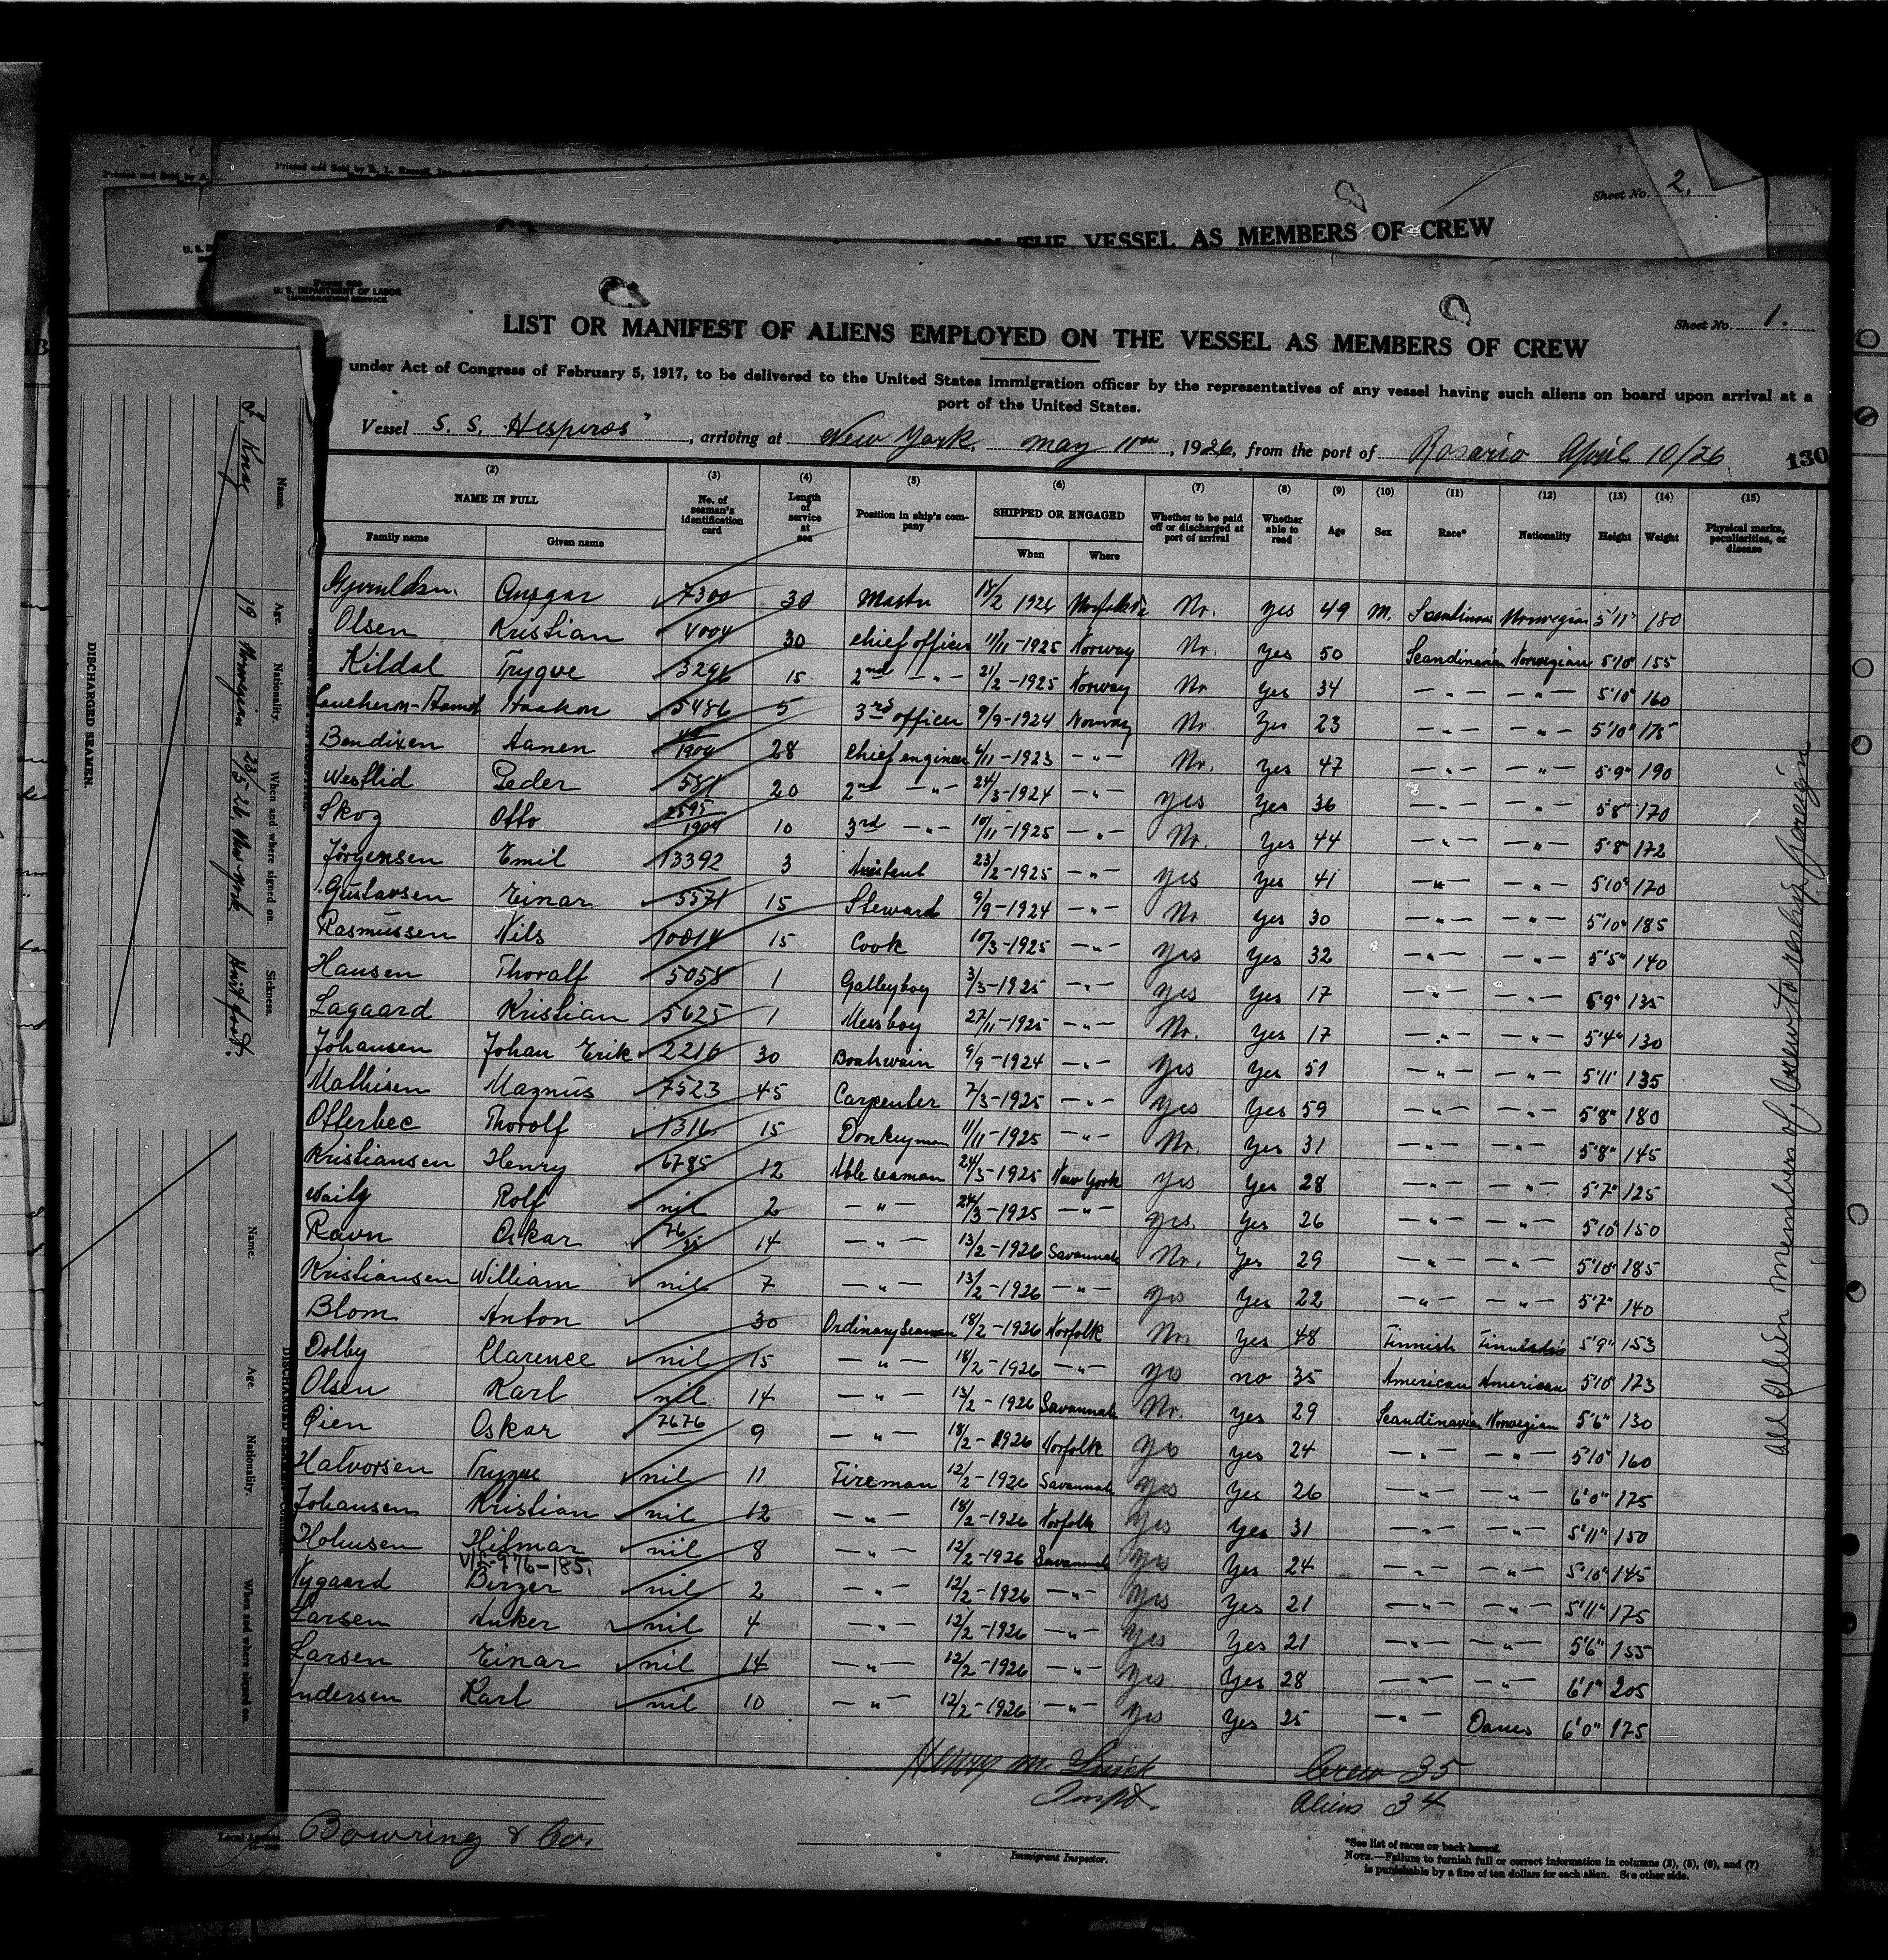 Sheet No. 2.
ON THE VESSEL AS MEMBERS OF CREW
U. S. DEPARTMENT OF LABOR
IMMIGRATION SERVICE
Sheet No. 1.
LIST OR MANIFEST OF ALIENS EMPLOYED ON THE VESSEL AS MEMBERS OF CREW
under Act of Congress of February 5, 1917, to be delivered to the United States immigration officer by the representatives of any vessel having such aliens on board upon arrival at a
port of the United States.
Vessel S. S. "Hesperos", arriving at New York, May 11th, 1926, from the port of Rosario April 10/26
130
(2) (3) (4) (5) (6) (7) (8) (9) (10) (11) (12) (13) (14) (15)
NAME IN FULL No. of seaman's identification card Length of service at sea Position in ship's company SHIPPED OR ENGAGED Whether to be paid off or discharged at port of arrival Whether able to read Age Sex Race* Nationality Height Weight Physical marks, peculiarities, or disease
Family name Given name When Where
Ansgar 7300 30 Master 18/2 1926 No. yes 49 M. Norwegian 5'11" 180
Olsen Kristian 4004 30 Chief officer 11/11-1925 Norway No. yes 50 Scandinavian Norwegian 5'10" 155
Kildal Trygve 3296 15 2nd -"- 21/2-1925 Norway No yes 34 -"- -"- 5'10" 160
Haakon 5486 5 3rd officer 9/9-1924 Norway No. Yes 23 -"- -"- 5'10" 175
Bendixen Aanen 1904 28 Chief engineer 6/11-1923 -"- No. Yes 47 -"- -"- 5'9" 190
Westlid Peder 581 20 2nd -"- 24/3-1924 -"- yes Yes 36 -"- -"- 5'8" 170
Skog Otto 2595/1904 10 3rd -"- 10/11-1925 -"- No. Yes 44 -"- -"- 5'8" 172
Jörgensen Emil 13392 3 Assistent 23/2-1925 -"- yes Yes 41 -"- -"- 5'10" 170
Gustavsen Einar 5571 15 Steward 9/9-1924 -"- No Yes 30 -"- -"- 5'10" 185
Rasmussen Nils 10014 15 Cook 10/3-1925 -"- yes Yes 32 -"- -"- 5'5" 140
Hansen Thoralf 5058 1 Galleyboy 3/3-1925 -"- yes Yes 17 -"- -"- 5'9" 135
Lagaard Kristian 5625 1 Messboy 27/11-1925 -"- No. Yes 17 -"- -"- 5'4" 130
Johansen Johan Erik 2216 30 Boatswain 9/9-1924 -"- yes Yes 51 -"- -"- 5'11" 135
Mathisen Magnus 7523 45 Carpenter 7/3-1925 -"- yes Yes 59 -"- -"- 5'8" 180
Otterbec Thorolf 1316 15 Donkeyman 11/11-1925 -"- No. Yes 31 -"- -"- 5'8" 145
Kristiansen Henry 6785 12 Able seaman 24/3-1925 New York yes Yes 28 -"- -"- 5'7" 125
Rolf nil 2 -"- 24/3-1925 -"- yes. Yes 26 -"- -"- 5'10" 150
Ravn Oskar 76/25 14 -"- 13/2-1926 Savannah No. Yes 29 -"- -"- 5'10" 185
Kristiansen William nil 7 -"- 13/2-1926 -"- yes Yes 22 -"- -"- 5'7" 140
Blom Anton 30 Ordinary seaman 18/2-1926 Norfolk No. Yes 48 Finnish 5'9" 153
Dolby Clarence nil 15 -"- 18/2-1926 -"- yes no 35 American American 5'10" 173
Olsen Karl nil 14 -"- 13/2-1926 Savannah No. yes 29 Scandinavian Norwegian 5'6" 130
Øien Oskar 7676 9 -"- 18/2-1926 Norfolk yes yes 24 -"- -"- 5'10" 160
Halvorsen Trygve nil 11 Fireman 12/2-1926 Savannah yes Yes 26 -"- -"- 6'0" 175
Johansen Kristian nil 12 -"- 18/2-1926 Norfolk yes Yes 31 -"- -"- 5'11" 150
Hilmar nil 8 -"- 12/2-1926 Savannah yes Yes 24 -"- -"- 5'10" 145
V15-976-185.
Nygaard Birger nil 2 -"- 12/2-1926 -"- yes Yes 21 -"- -"- 5'11" 175
Larsen Anker nil 4 -"- 12/2-1926 -"- yes Yes 21 -"- -"- 5'6" 155
Larsen Einar nil 14 -"- 12/2-1926 -"- yes Yes 28 -"- -"- 6'1" 205
Andersen Karl nil 10 -"- 12/2-1926 -"- yes Yes 25 -"- Danes 6'0" 175
Henry M.
Insptr.
Crew 35
Aliens 34
Bowring & Co.
Immigrant Inspector.
*See list of races on back hereof.
NOTE.—Failure to furnish full or correct information in columns (2), (5), (6), and (7)
is punishable by a fine of ten dollars for each alien. See other side.
All Alien members of Crew to reship foreign
DISCHARGED SEAMEN.
Name. Age. Nationality. When and where signed on. Sickness.
19 Norwegian 23/5-26
Name. Age. Nationality. When and where signed on.